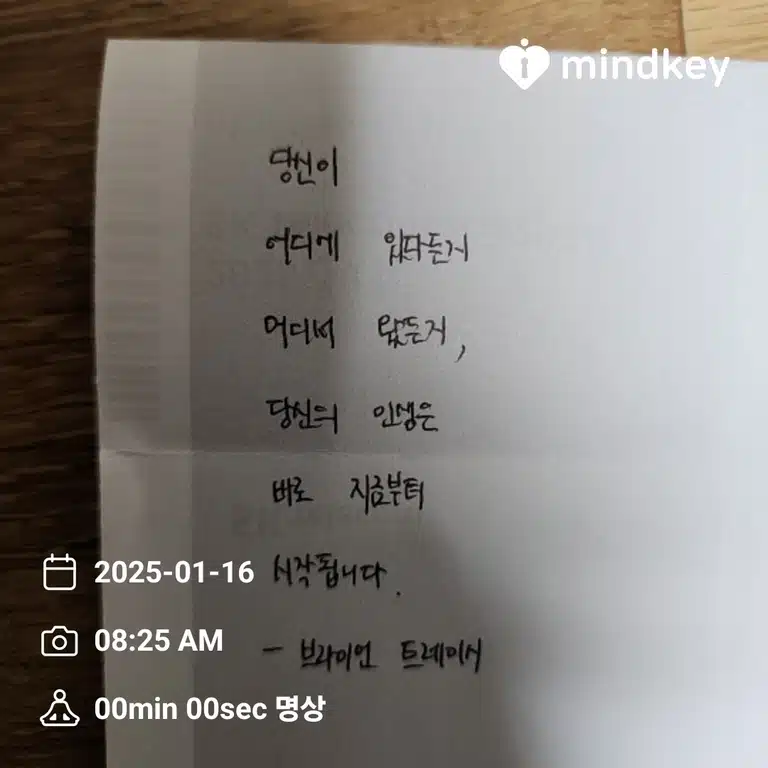 mindkey
당신이
어디에 있다든지
어디서 왔든지,
당신의 인생은
바로 지금부터
시작됩니다.
- 브라이언 트레이시
2025-01-16
08:25 AM
00min 00sec 명상